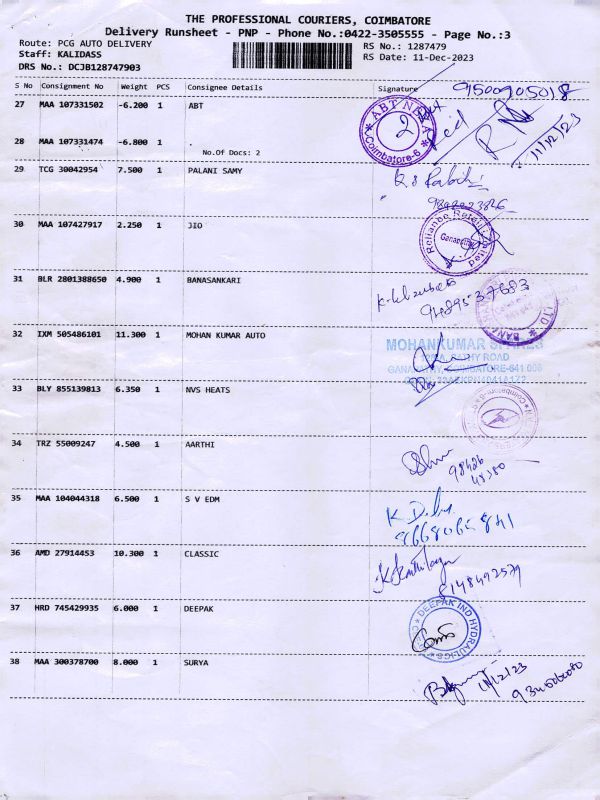 THE PROFESSIONAL COURIERS, COIMBATORE
Delivery Runsheet - PNP - Phone No.:0422-3505555 - Page No.:3
Route: PCG AUTO DELIVERY
RS No.: 1287479
Staff: KALIDASS
RS Date: 11-Dec-2023
DRS No.: DCJB128747903
S No Consignment No Weight PCS Consignee Details Signature
9500905018
27 MAA 107331502 -6.200 1 ABT
11/12/23
28 MAA 107331474 -6.800 1
No.Of Docs: 2
Coimbatore-6
29 TCG 30042954 7.500 1 PALANI SAMY
30 MAA 107427917 2.250 1 JIO
31 BLR 2801388650 4.900 1 BANASANKARI
9489537683
32 IXM 505486101 11.300 1 MOHAN KUMAR AUTO
MOHANKUMAR SPARES
GANAPATHY, COIMBATORE-641 006
33 BLY 855139813 6.350 1 NVS HEATS
34 TRZ 55009247 4.500 1 AARTHI
98426
43380
35 MAA 104044318 6.500 1 S V EDM
9668065841
36 AMD 27914453 10.300 1 CLASSIC
8148492579
37 HRD 745429935 6.000 1 DEEPAK
DEEPAK IND HYDRAULICS
38 MAA 300378700 8.000 1 SURYA
11/12/23